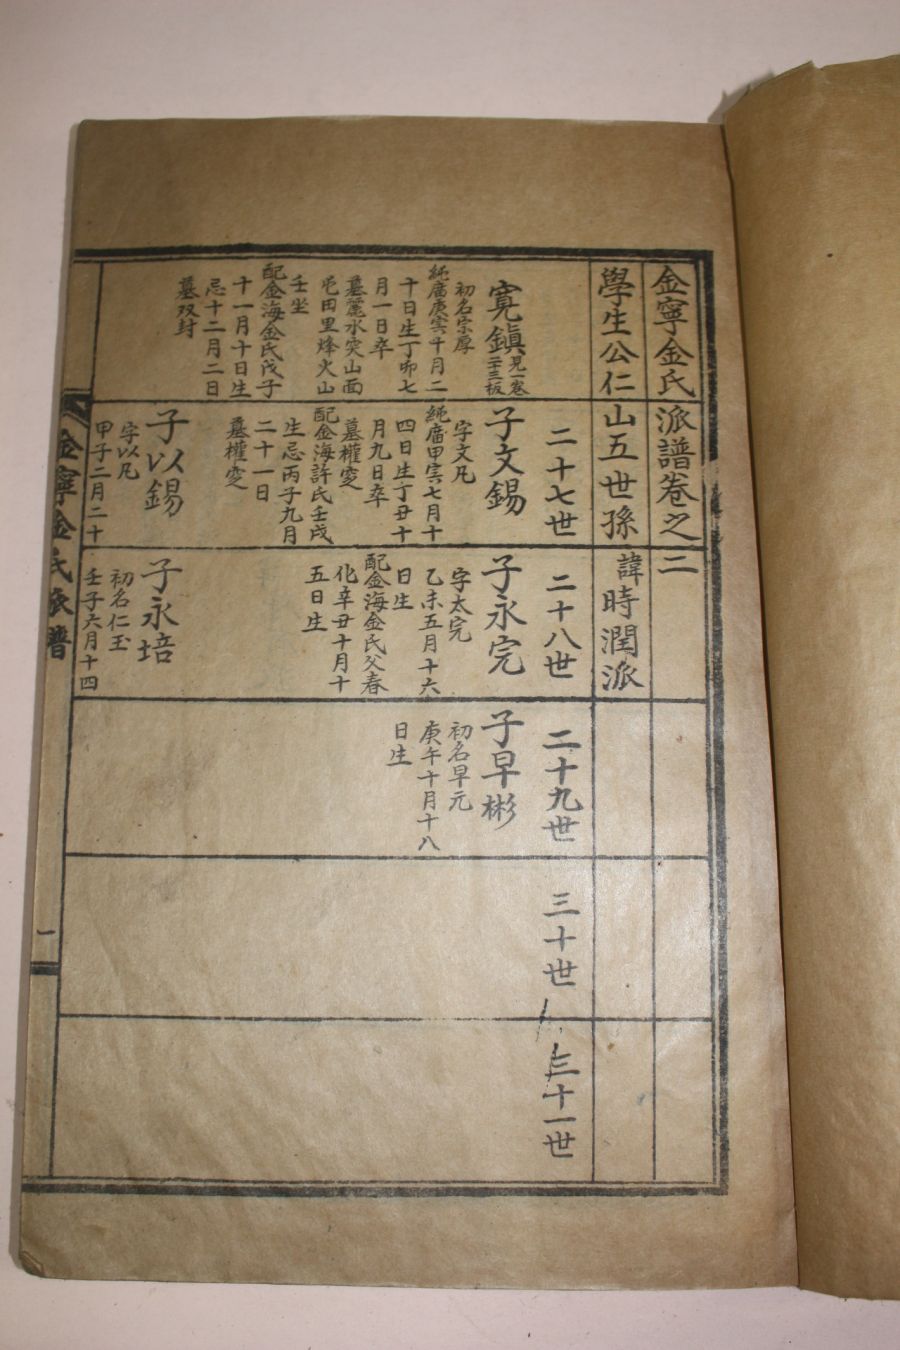 金寧金氏派譜卷之二
學生公仁山五世孫諱時潤派
二十七世
二十八世
二十九世
三十世
三十一世
寬鎭見一卷二十三板
初名宗厚
純廟庚寅十月二
十日生丁卯七
月一日卒
墓麗水突山面
屯田里烽火山
壬坐
配金海金氏戊子
十一月十日生
忌十二月二日
墓双封
子文錫
字文凡
純廟甲寅七月十
四日生丁丑十
月九日卒
墓權窆
配金海許氏壬戌
生忌丙子九月
二十一日
墓權窆
子以錫
字以凡
甲子二月二十
子永完
字太完
乙未五月十六
日生
配金海金氏父春
化辛丑十月十
五日生
子永培
初名仁玉
壬子六月十四
子早彬
初名早元
庚午十月十八
日生
金寧金氏派譜
一